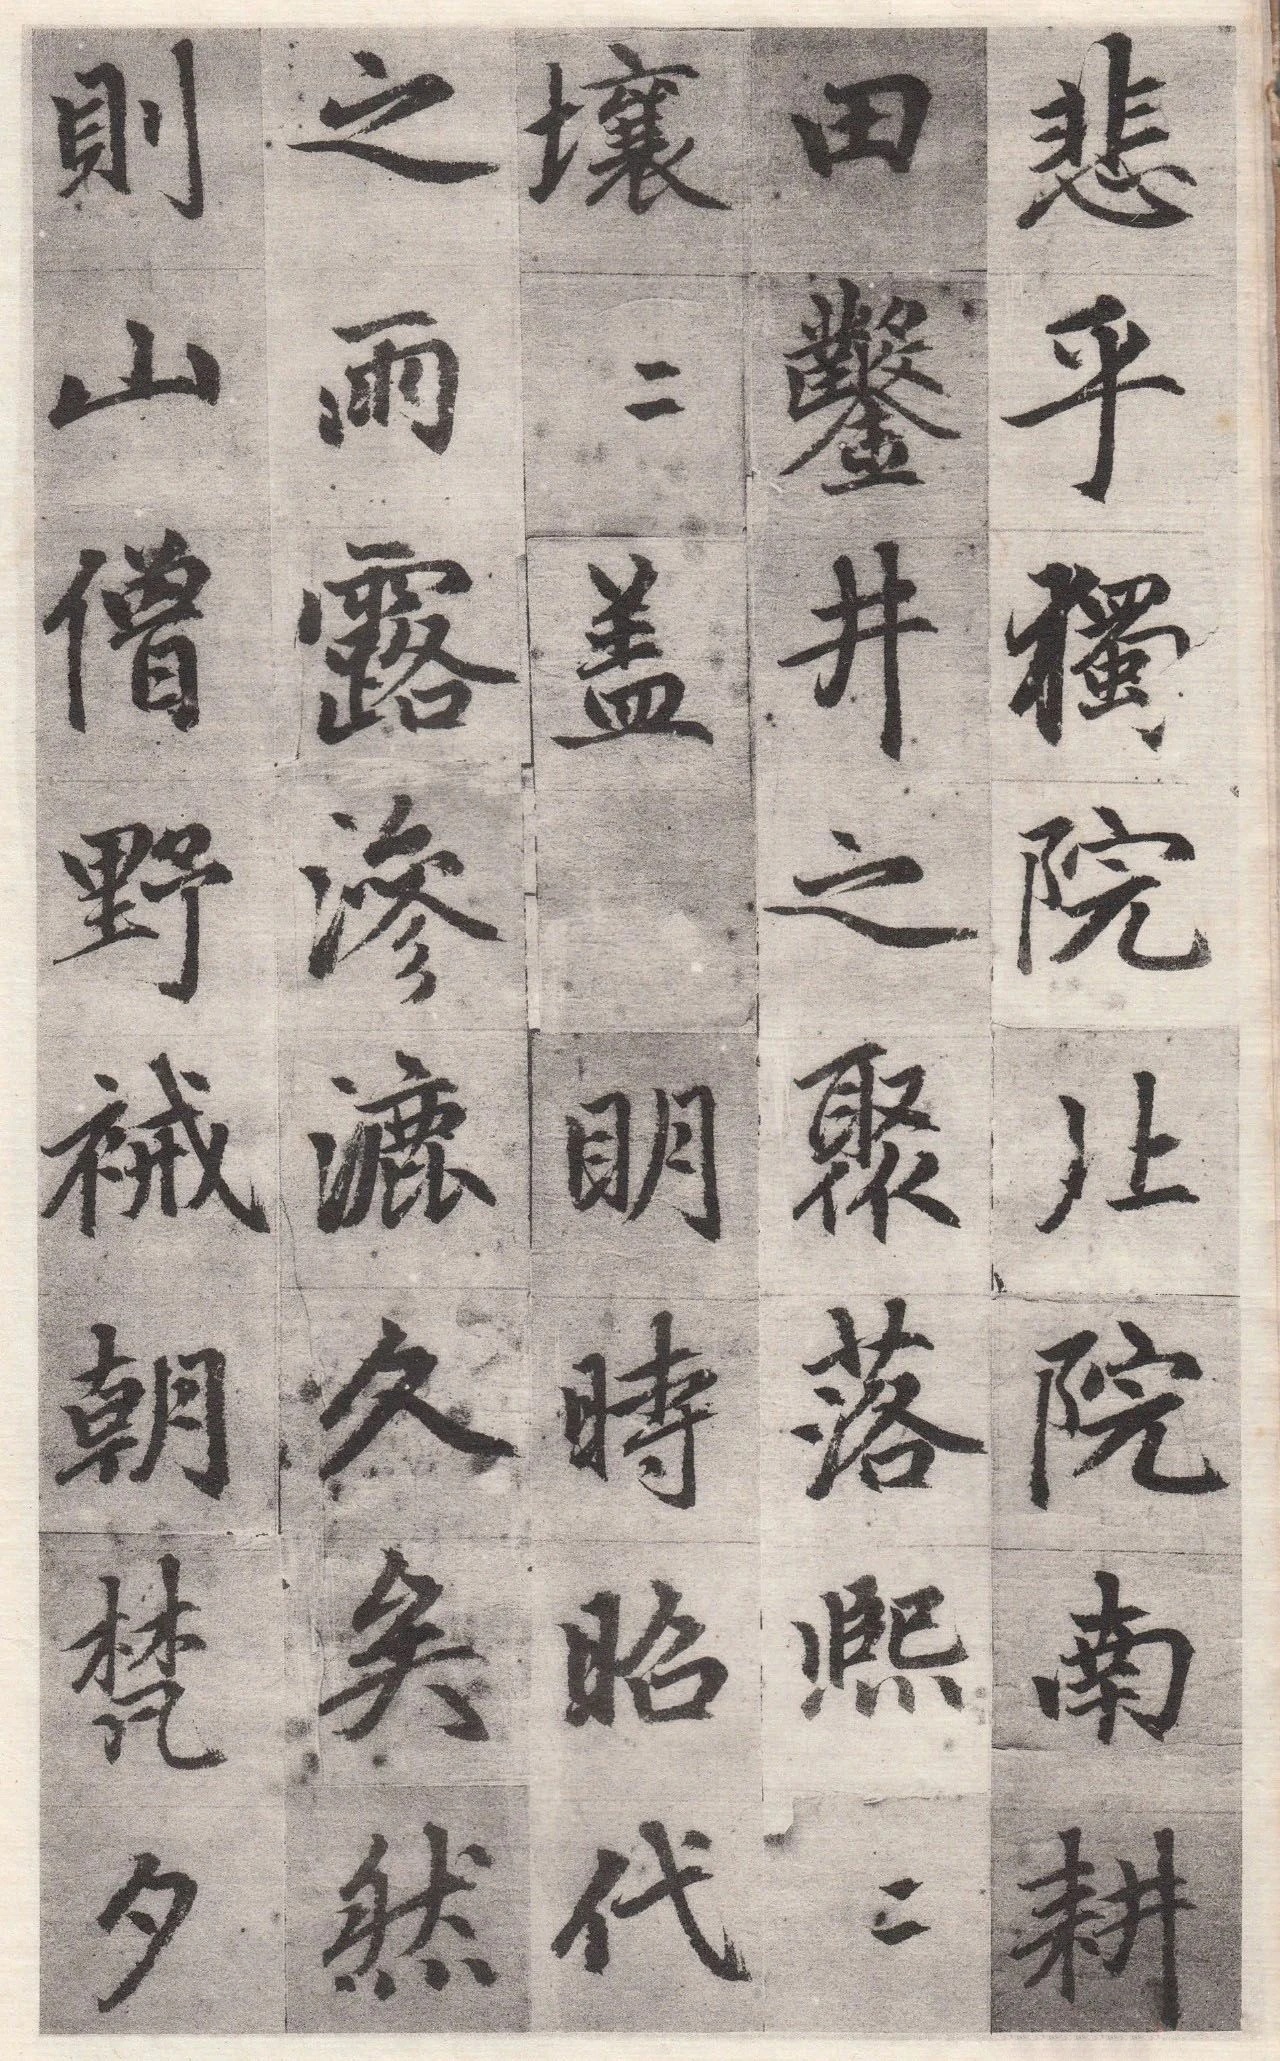 悲乎獨院北院南耕
田鑿井之聚落熙々
壤々盖明時昭代
之雨露滲漉久矣然
則山僧野衲朝梵夕